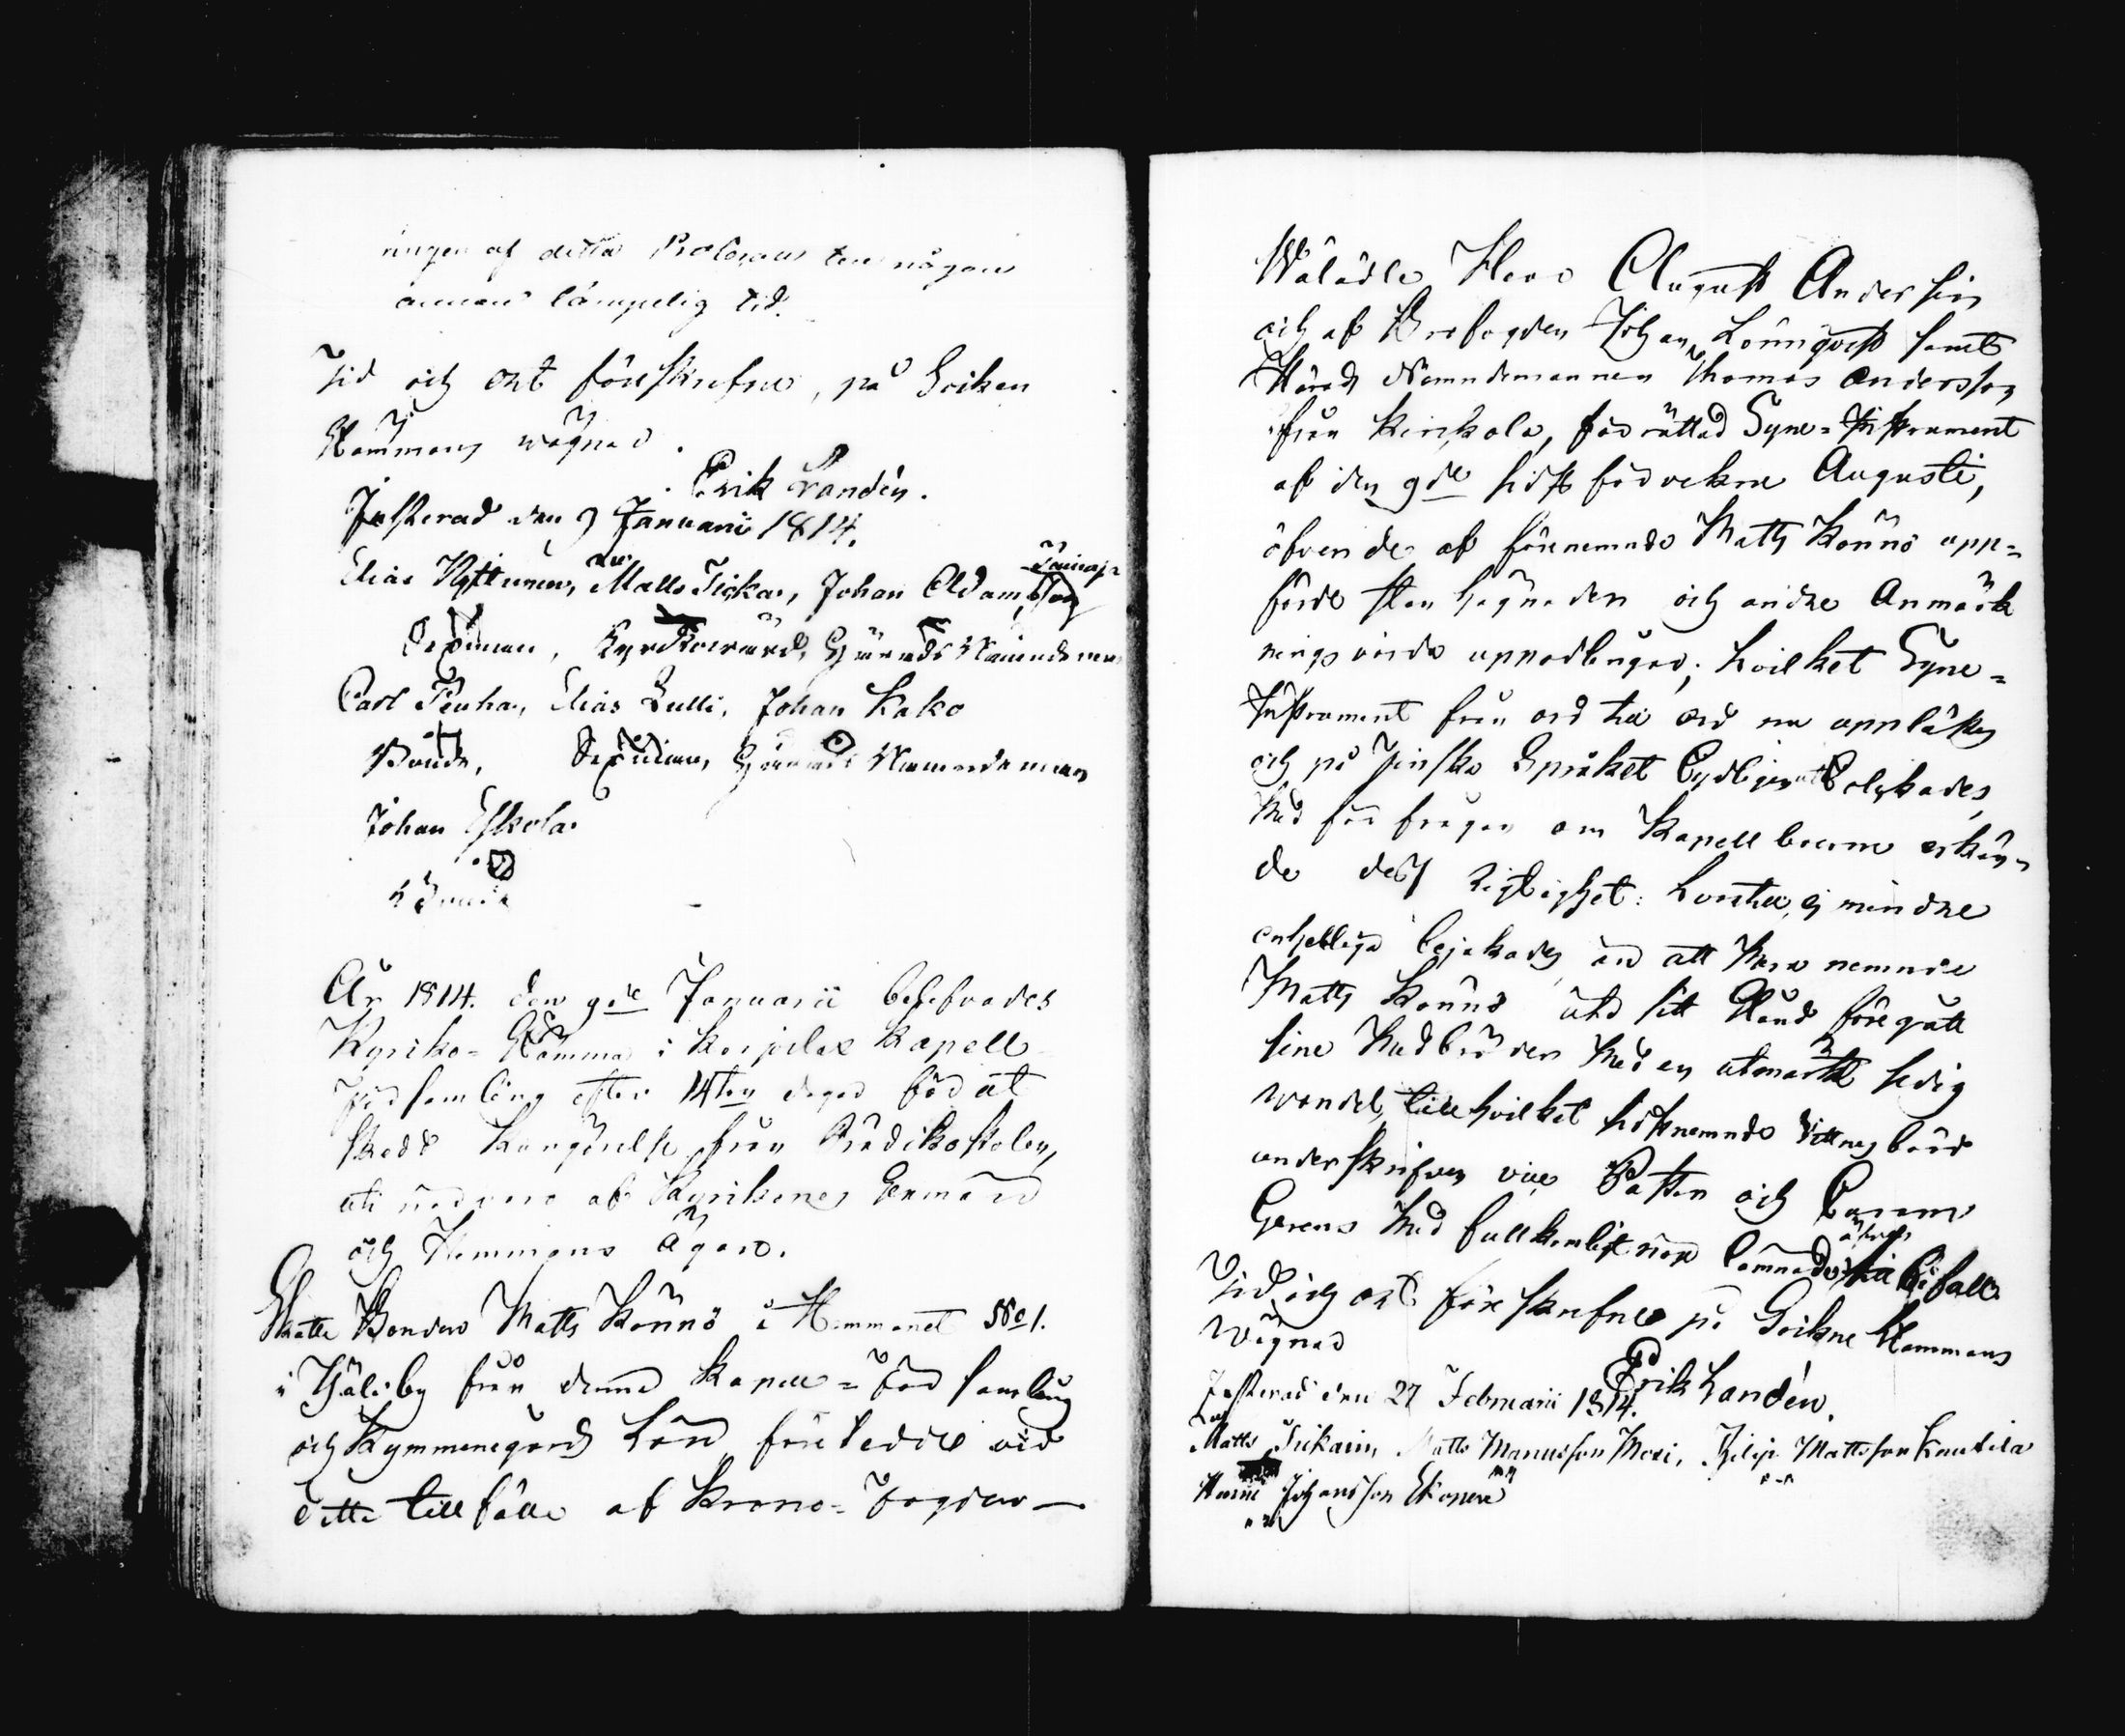 ringen af detta Protocoll till någon
annan lämpelig tid.
Tid och Ort föreskrefne, på Sockne
Stämmans wägnar.
Erik Landén.
Justerad den 9 Januarii 1814.
Elias Hyttinen, Matts Tickar, Johan Adamsson
Sexman, Kyrckowärd, Härads Nämndeman
Carl Peuha, Elias Lulli, Johan Kako
Bonde, Sexman, Härads Nämndeman
Johan Eskola
Bonde
År 1814. den 9de Januarii behöfvades
Kyrko-Stämma i Kapell
Församling efter 14ton dagar förut
skedd Kungörelse från Prädikostolen,
uti närvaro af Kyrkones
och Hemmans Ägare.
Skatte Bonden Matts Könnö å Hemmanet No 1.
i by från denne Kapell-För samling
och Kymmenegårds Län företedde vid
detta tillfälle af Krono-Fogden
Wälädle Herr August Andersin
och af Brofogden Johan Lönnqvist samt
Härads Nämndemannen Thomas Andersson
från Kirjkola, för rättad Syne-Instrument
af den 9de sidst förvekne Augusti,
öfver de af förenemnde Matts Könnö upp=
förde Sten hägnader och andre Anmärk
nings värde uppodlingar; hvilket Syne=
Instrument från ord till ord nu upplästes
och på Finska Språket tydligen uttolkades,
Med för frågan om Kapellboerne erkän-
de dess Rigtighet: hvartill, ej mindre
enhelligt bejakades, än att Mera nemnde
Matts Könnö altid sitt Stånd föregått
sine Medbröder Med en utmärkt sedig
wandel, till hvilket sistnemnde Vittnes börd
underskrifven vice Pastor och
Gerens Med fullkomligt nöje lämnade sitt bifall.
Tid och ort föreskrefne på Sockne Stämmans
Wägnar
Erik Landén.
Justerad den 27 Februarii 1814.
Matts Tickain, Matts Manusson Mori, Filip Mattsson Knutila
Johansson